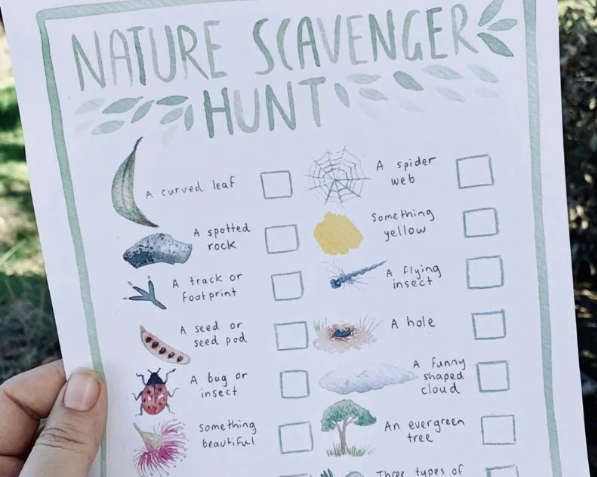 NATURE SCAVENGER
HUNT
A curved leaf
A spotted
rock
A track or
footprint
A seed or
seed pod
A bug or
insect
something
beautiful
A spider
web
Something
yellow
A flying
insect
A hole
A funny
shaped
cloud
An evergreen
tree
Three types of